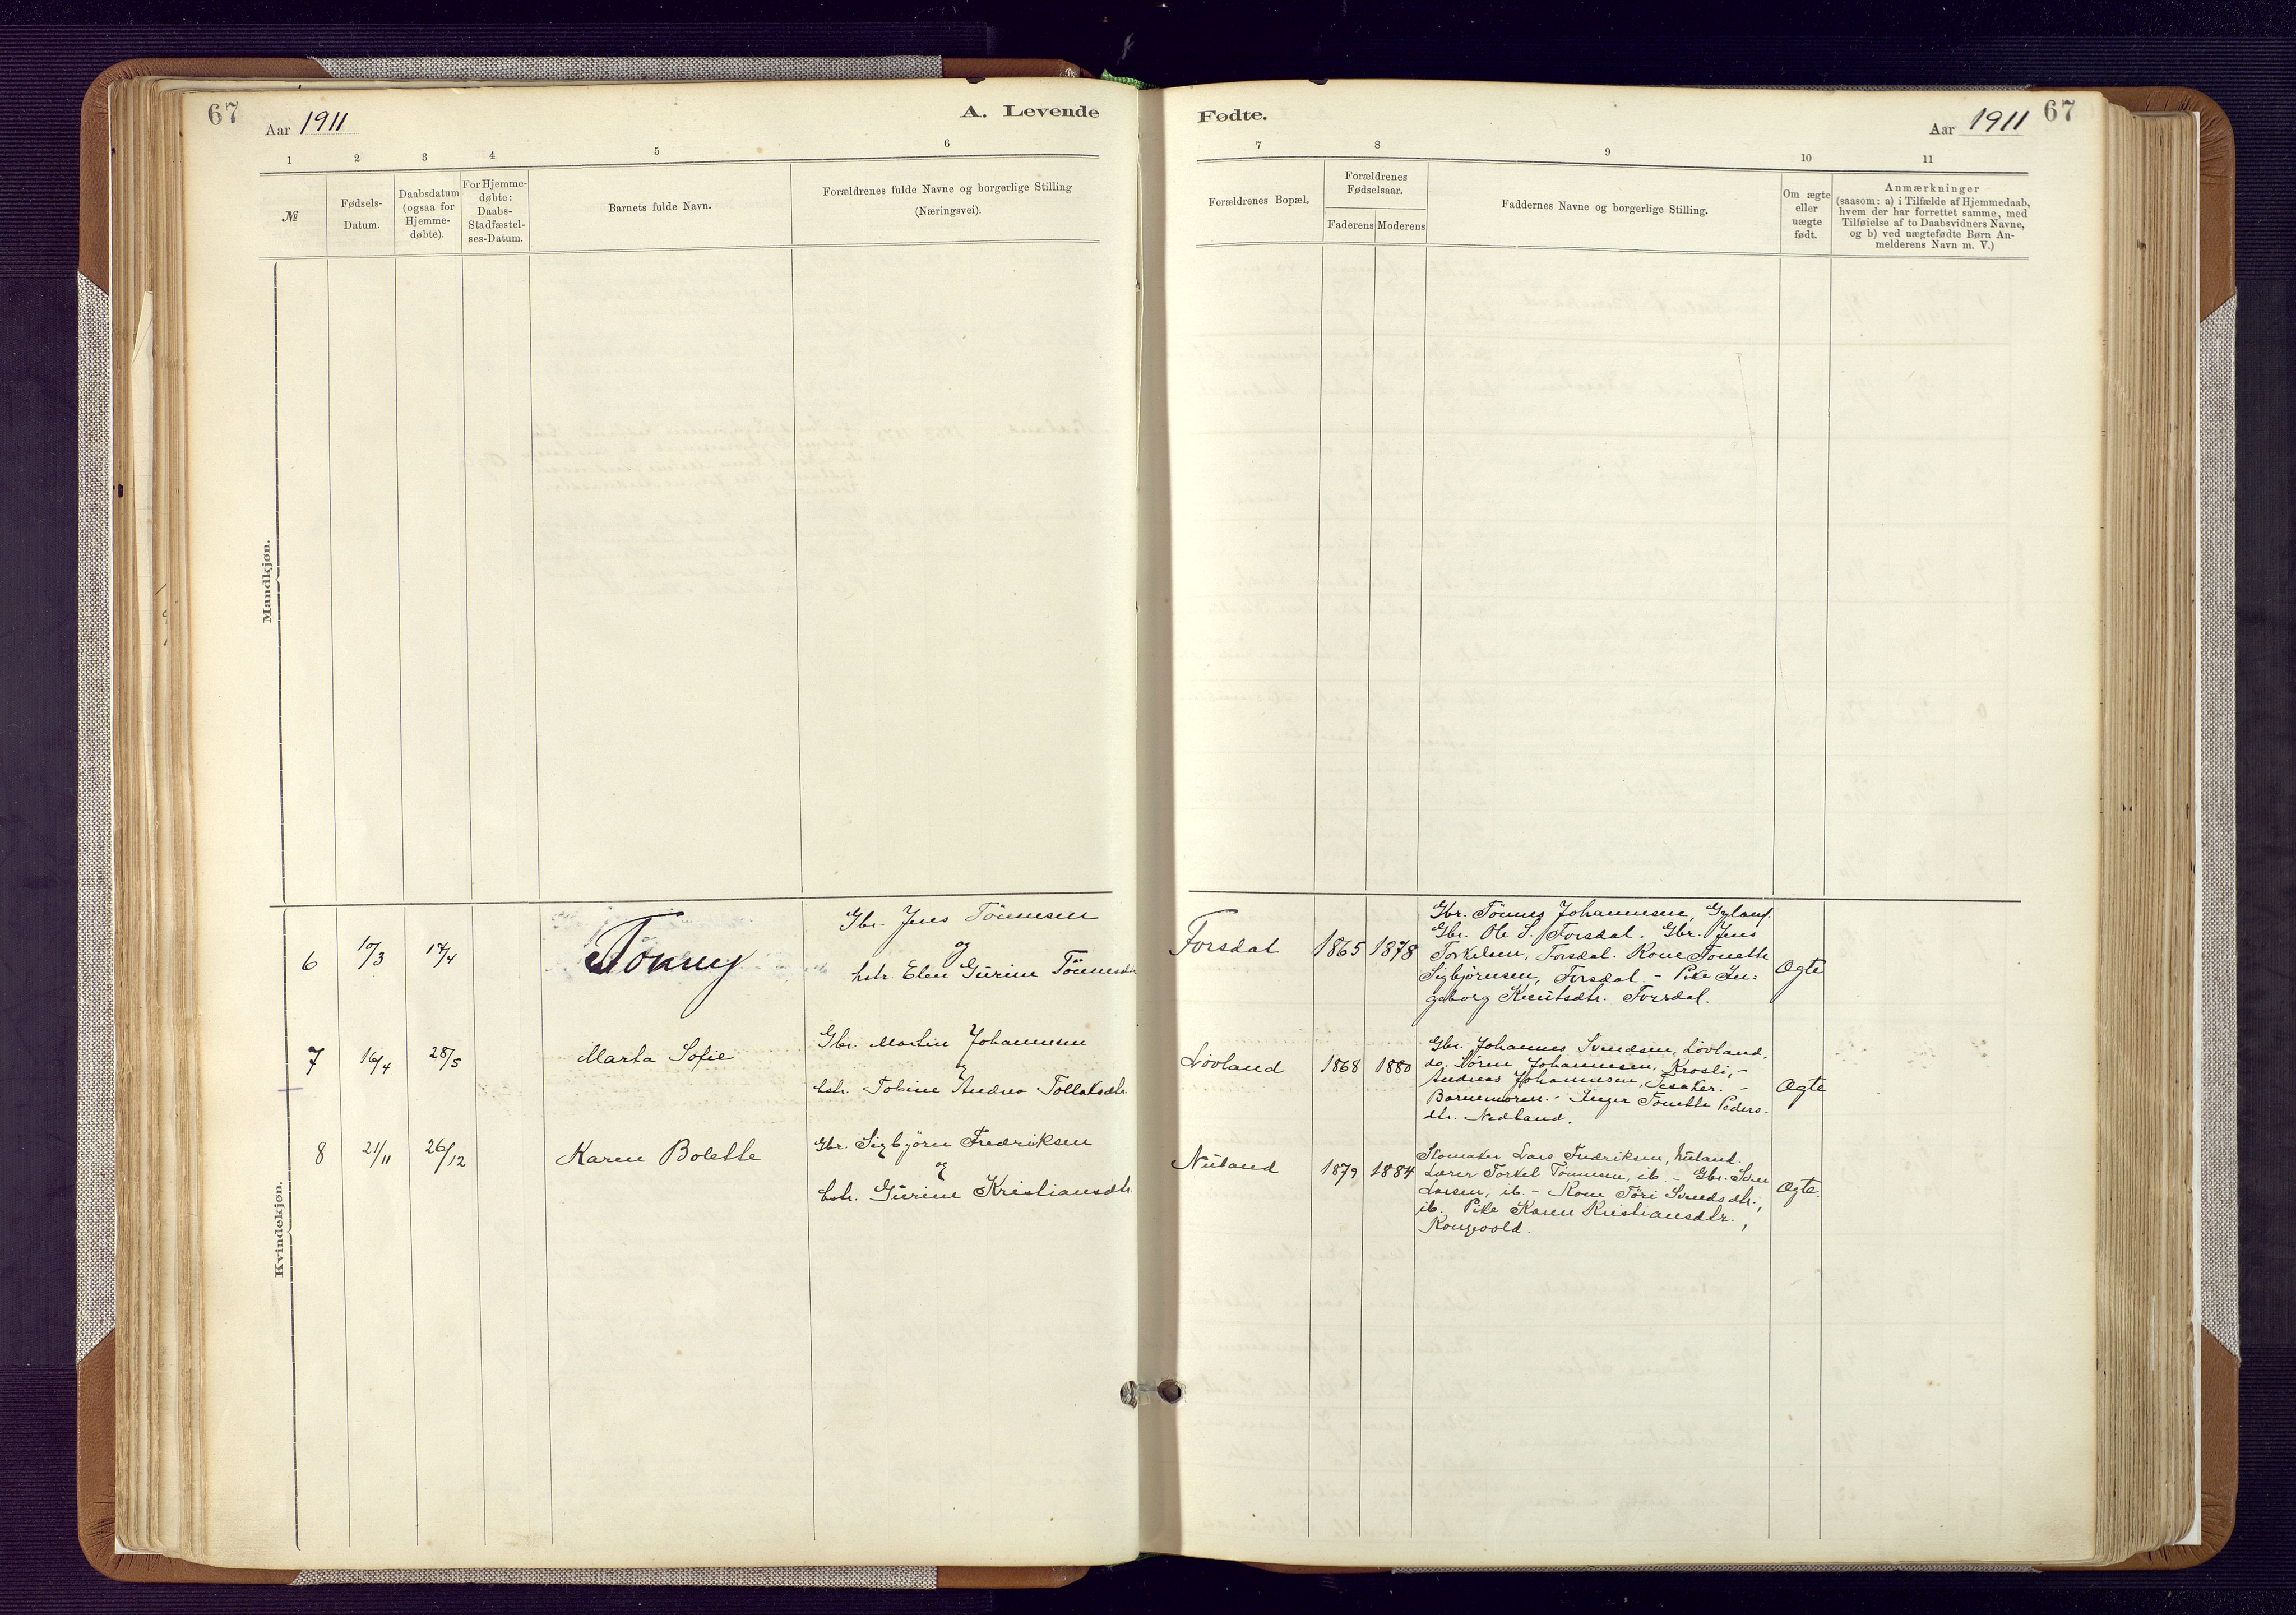 67
Aar 1911
A. Levende
1 2 3 4 5 6
№
Fødsels-
Datum.
Daabsdatum
(ogsaa for
Hjemme-
døbte).
For Hjemme-
døbte:
Daabs-
Stadfæstel-
ses-Datum.
Barnets fulde Navn.
Forældrenes fulde Navne og borgerlige Stilling
(Næringsvei).
Mandkjøn.
6 10/3 17/4 Tonny
Gbr. Jens Tönnesen
og
hstr Elen Gurine Tönnesdr
7 16/4 28/5 Marta Sofie
Gbr. Martin Johannesen
og
hstr. Tobine Andrea Tollaksdtr.
8 21/11 26/12 Karen Bolette
Gbr. Sigbjörn Fredriksen
og
hstr. Gurine Kristiansdtr
Kvindekjøn.
Fødte.
Aar 1911
67
7 8 9 10 11
Forældrenes Bopæl.
Forældrenes
Fødselsaar.
Faderens Moderens
Faddernes Navne og borgerlige Stilling.
Om ægte
eller
uægte
født.
Anmærkninger
(saasom: a) i Tilfælde af Hjemmedaab,
hvem der har forrettet samme, med
Tilføielse af to Daabsvidners Navne,
og b) ved uægtefødte Børn An-
melderens Navn m. V.)
Forsdal 1865 1878
Gbr. Tönnes Johannesen, Gyland.
Gbr. Ole S. Forsdal. Gbr. Jens
Torkelsen, Forsdal. Kone Tonette
Sigbjörnsen, Forsdal. - Pike In-
geborg Knutsdtr. Forsdal.
Ægte
Lövland 1868 1880
Gbr. Johannes Svendsen, Lövland,
do. Sören Johannesen, Krosli, -
Andreas Johannesen, Tesaker. -
Barnemoren. - Inger Tonette Peders-
dtr. Nedland.
Ægte
Nuland 1879 1884
Skomaker Lars Fredriksen, Nuland.
Lærer Torkel Tönnesen, ib. - Gbr. Sven
Larsen, ib. - Kone Töri Svendsdtr.,
ib. Pike Karen Kristiansdtr.,
Kongevold.
Ægte.